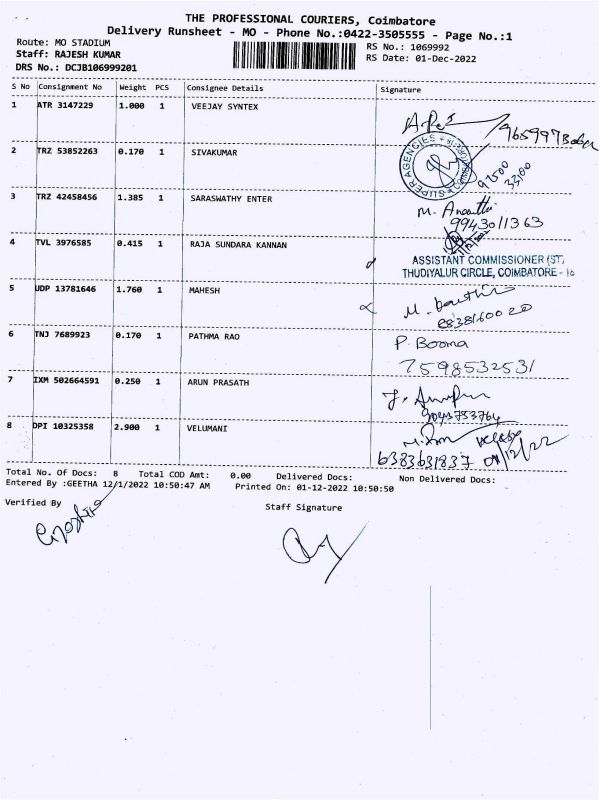 THE PROFESSIONAL COURIERS, Coimbatore
Delivery Runsheet - MO - Phone No.:0422-3505555 - Page No.:1
Route: MO STADIUM
Staff: RAJESH KUMAR
DRS No.: DCJB106999201
RS No.: 1069992
RS Date: 01-Dec-2022
S No Consignment No Weight PCS Consignee Details Signature
1 ATR 3147229 1.000 1 VEEJAY SYNTEX
2 TRZ 53852263 0.170 1 SIVAKUMAR
SUPER AGENCIES
97500
3 TRZ 42458456 1.385 1 SARASWATHY ENTER
M. Ananthi
9943011363
4 TVL 3976585 0.415 1 RAJA SUNDARA KANNAN
ASSISTANT COMMISSIONER (ST)
THUDIYALUR CIRCLE, COIMBATORE -
5 UDP 13781646 1.760 1 MAHESH
6 TNJ 7689923 0.170 1 PATHMA RAO
P. Booma
7598532531
7 IXM 502664591 0.250 1 ARUN PRASATH
8 DPI 10325358 2.900 1 VELUMANI
6383631837
Total No. Of Docs: 8 Total COD Amt: 0.00 Delivered Docs: Non Delivered Docs:
Entered By :GEETHA 12/1/2022 10:50:47 AM Printed On: 01-12-2022 10:50:50
Verified By Staff Signature